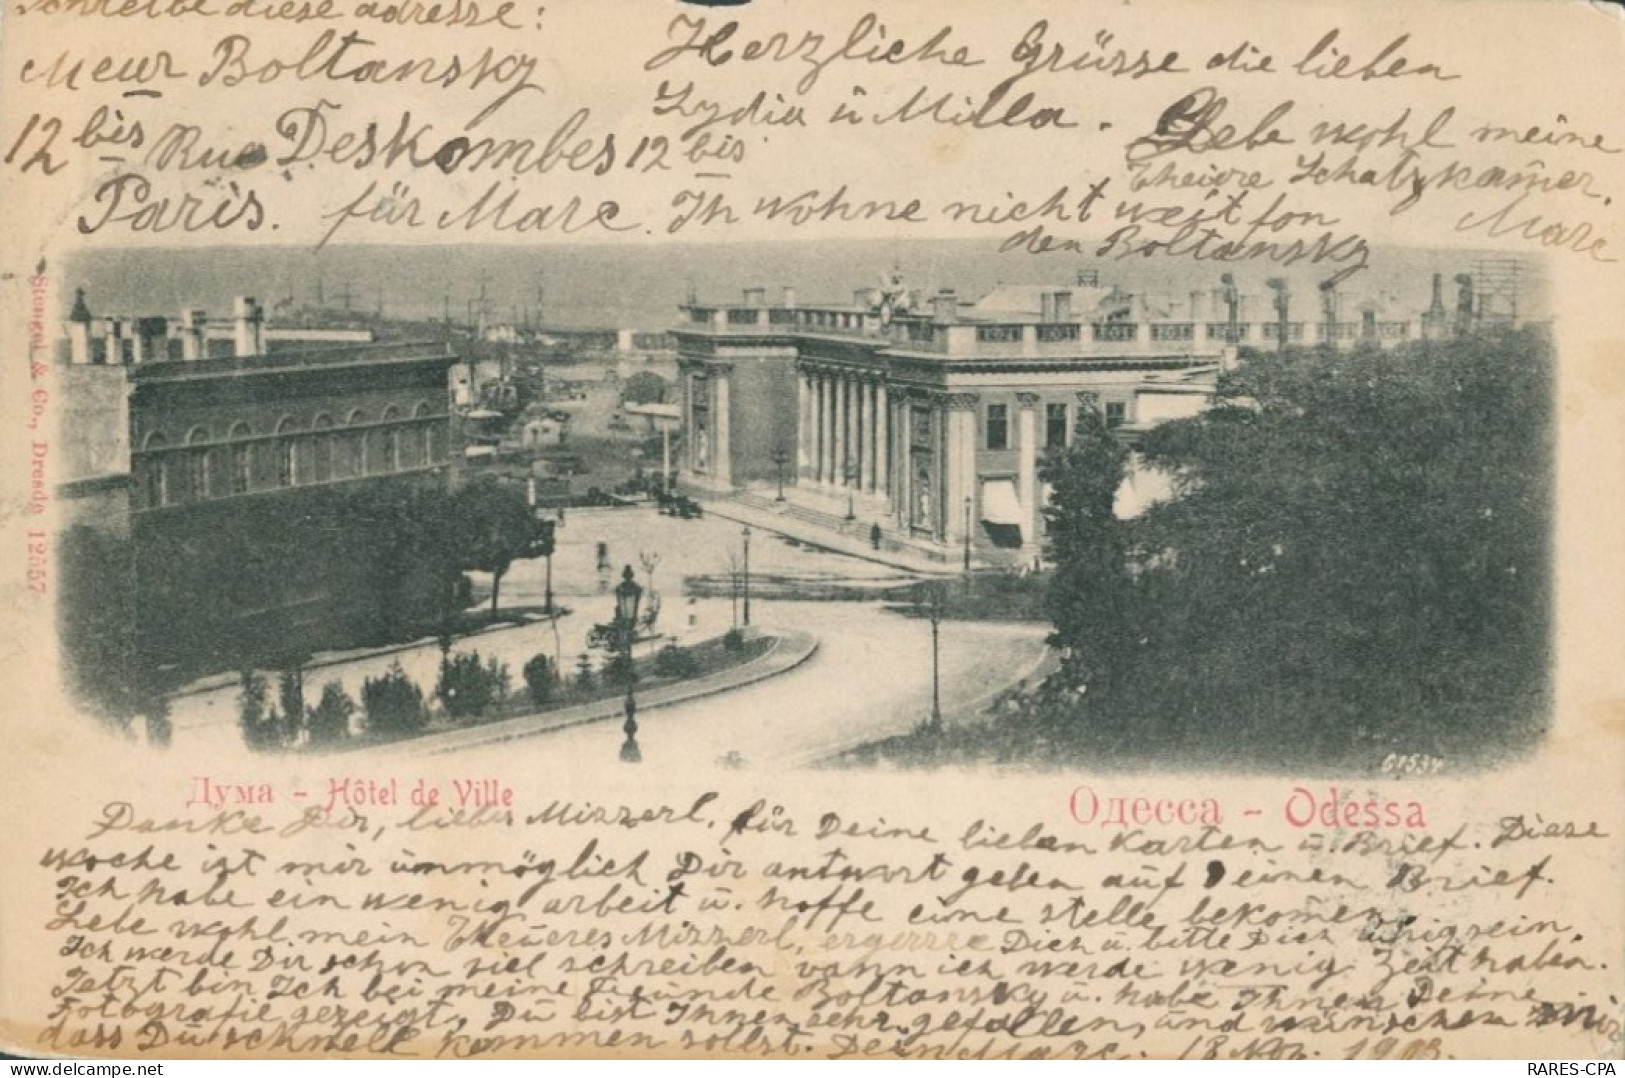 Schreibe diese adresse:
Meur Boltansky
12 bis Rue Deskombes 12 bis
Paris. für Marc.
Herzliche Grüsse die lieben
Lydia ü Milla.
Lebe wohl meine
theüre Schatzkam̄er.
Marc
Ih wohne nicht weit fon
den Boltansky
Stengel & Co., Dresde 12557
61534
Дума - Hôtel de Ville
Одесса - Odessa
Danke Dir, lieber Mizzerl, für Deine lieben Karten ü. Brief. Diese
woche ist mir ünmöglich Dir antwort geben auf Deinen Brief.
Ich habe ein wenig arbeit ü. hoffe eine stelle bekomen.
Lebe wohl mein Theüeres Mizzerl, ergerrre Dich ü. bitte Dich rühig sein.
Ich werde Dir schon viel schreiben vann ich werde wenig Zeit haben.
Jetzt bin Ich bei meine Freünde Boltansky ü. habe Ihnen Deine
Fotografie gezeigt, Dü bist Ihnen sehr gefallen, ünd wünschen mir
dass Dü schnell kommen sollst. Dein Marc. 18 Nov. 1903.
RARES-CPA